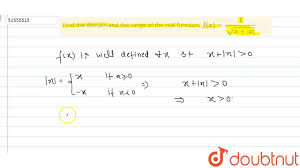 51555515
Find the domain and the range of the real function f(x) = 1/√x+|x|
f(x) is well defined ∀x s.t x+|x|>0
|x| = { x if x≥0 ⇒ x+|x|>0
-x if x<0 ⇒ x>0
doubtnut